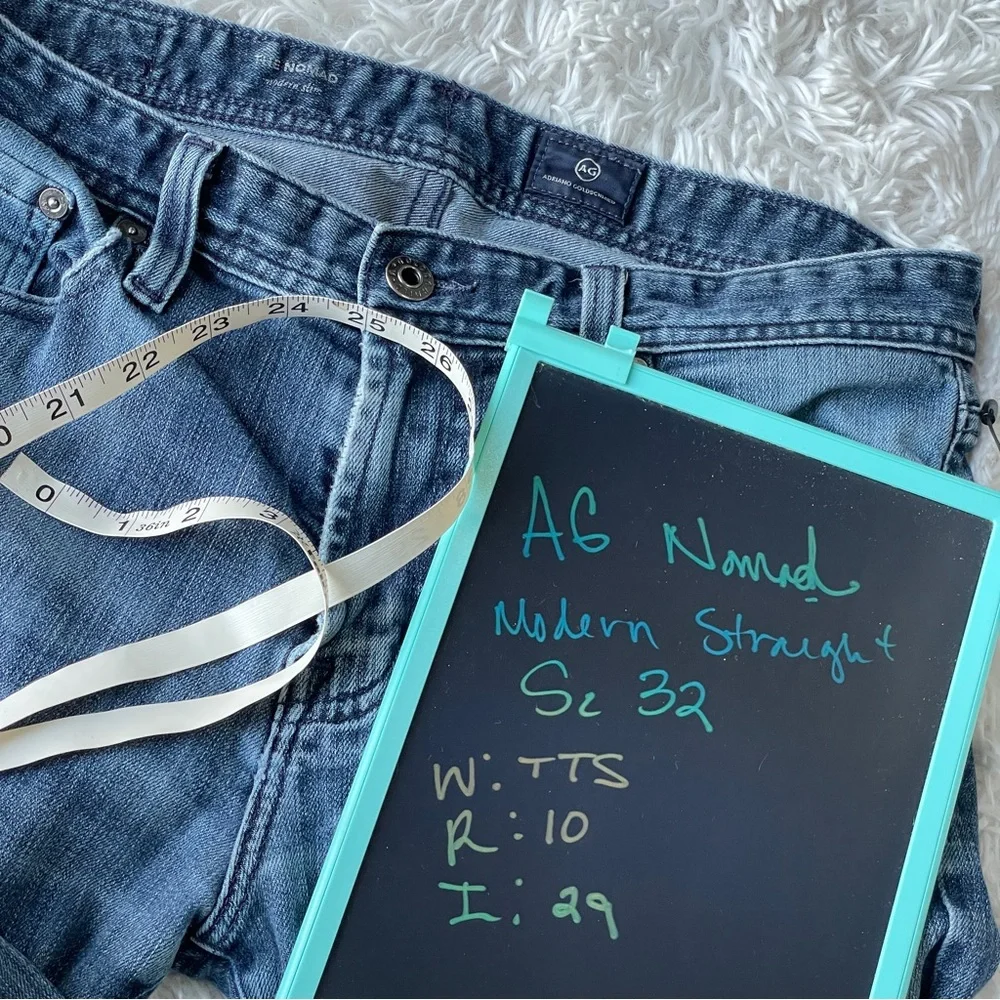 THE NOMAD
modern slim
AG
ADRIANO GOLDSCHMIED
21 22 23 24 25 26
0 1 36in 2 3
AG Nomad
Modern Straight
Sz 32
W: TTS
R: 10
I: 29